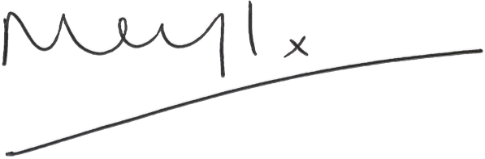 Meryl x